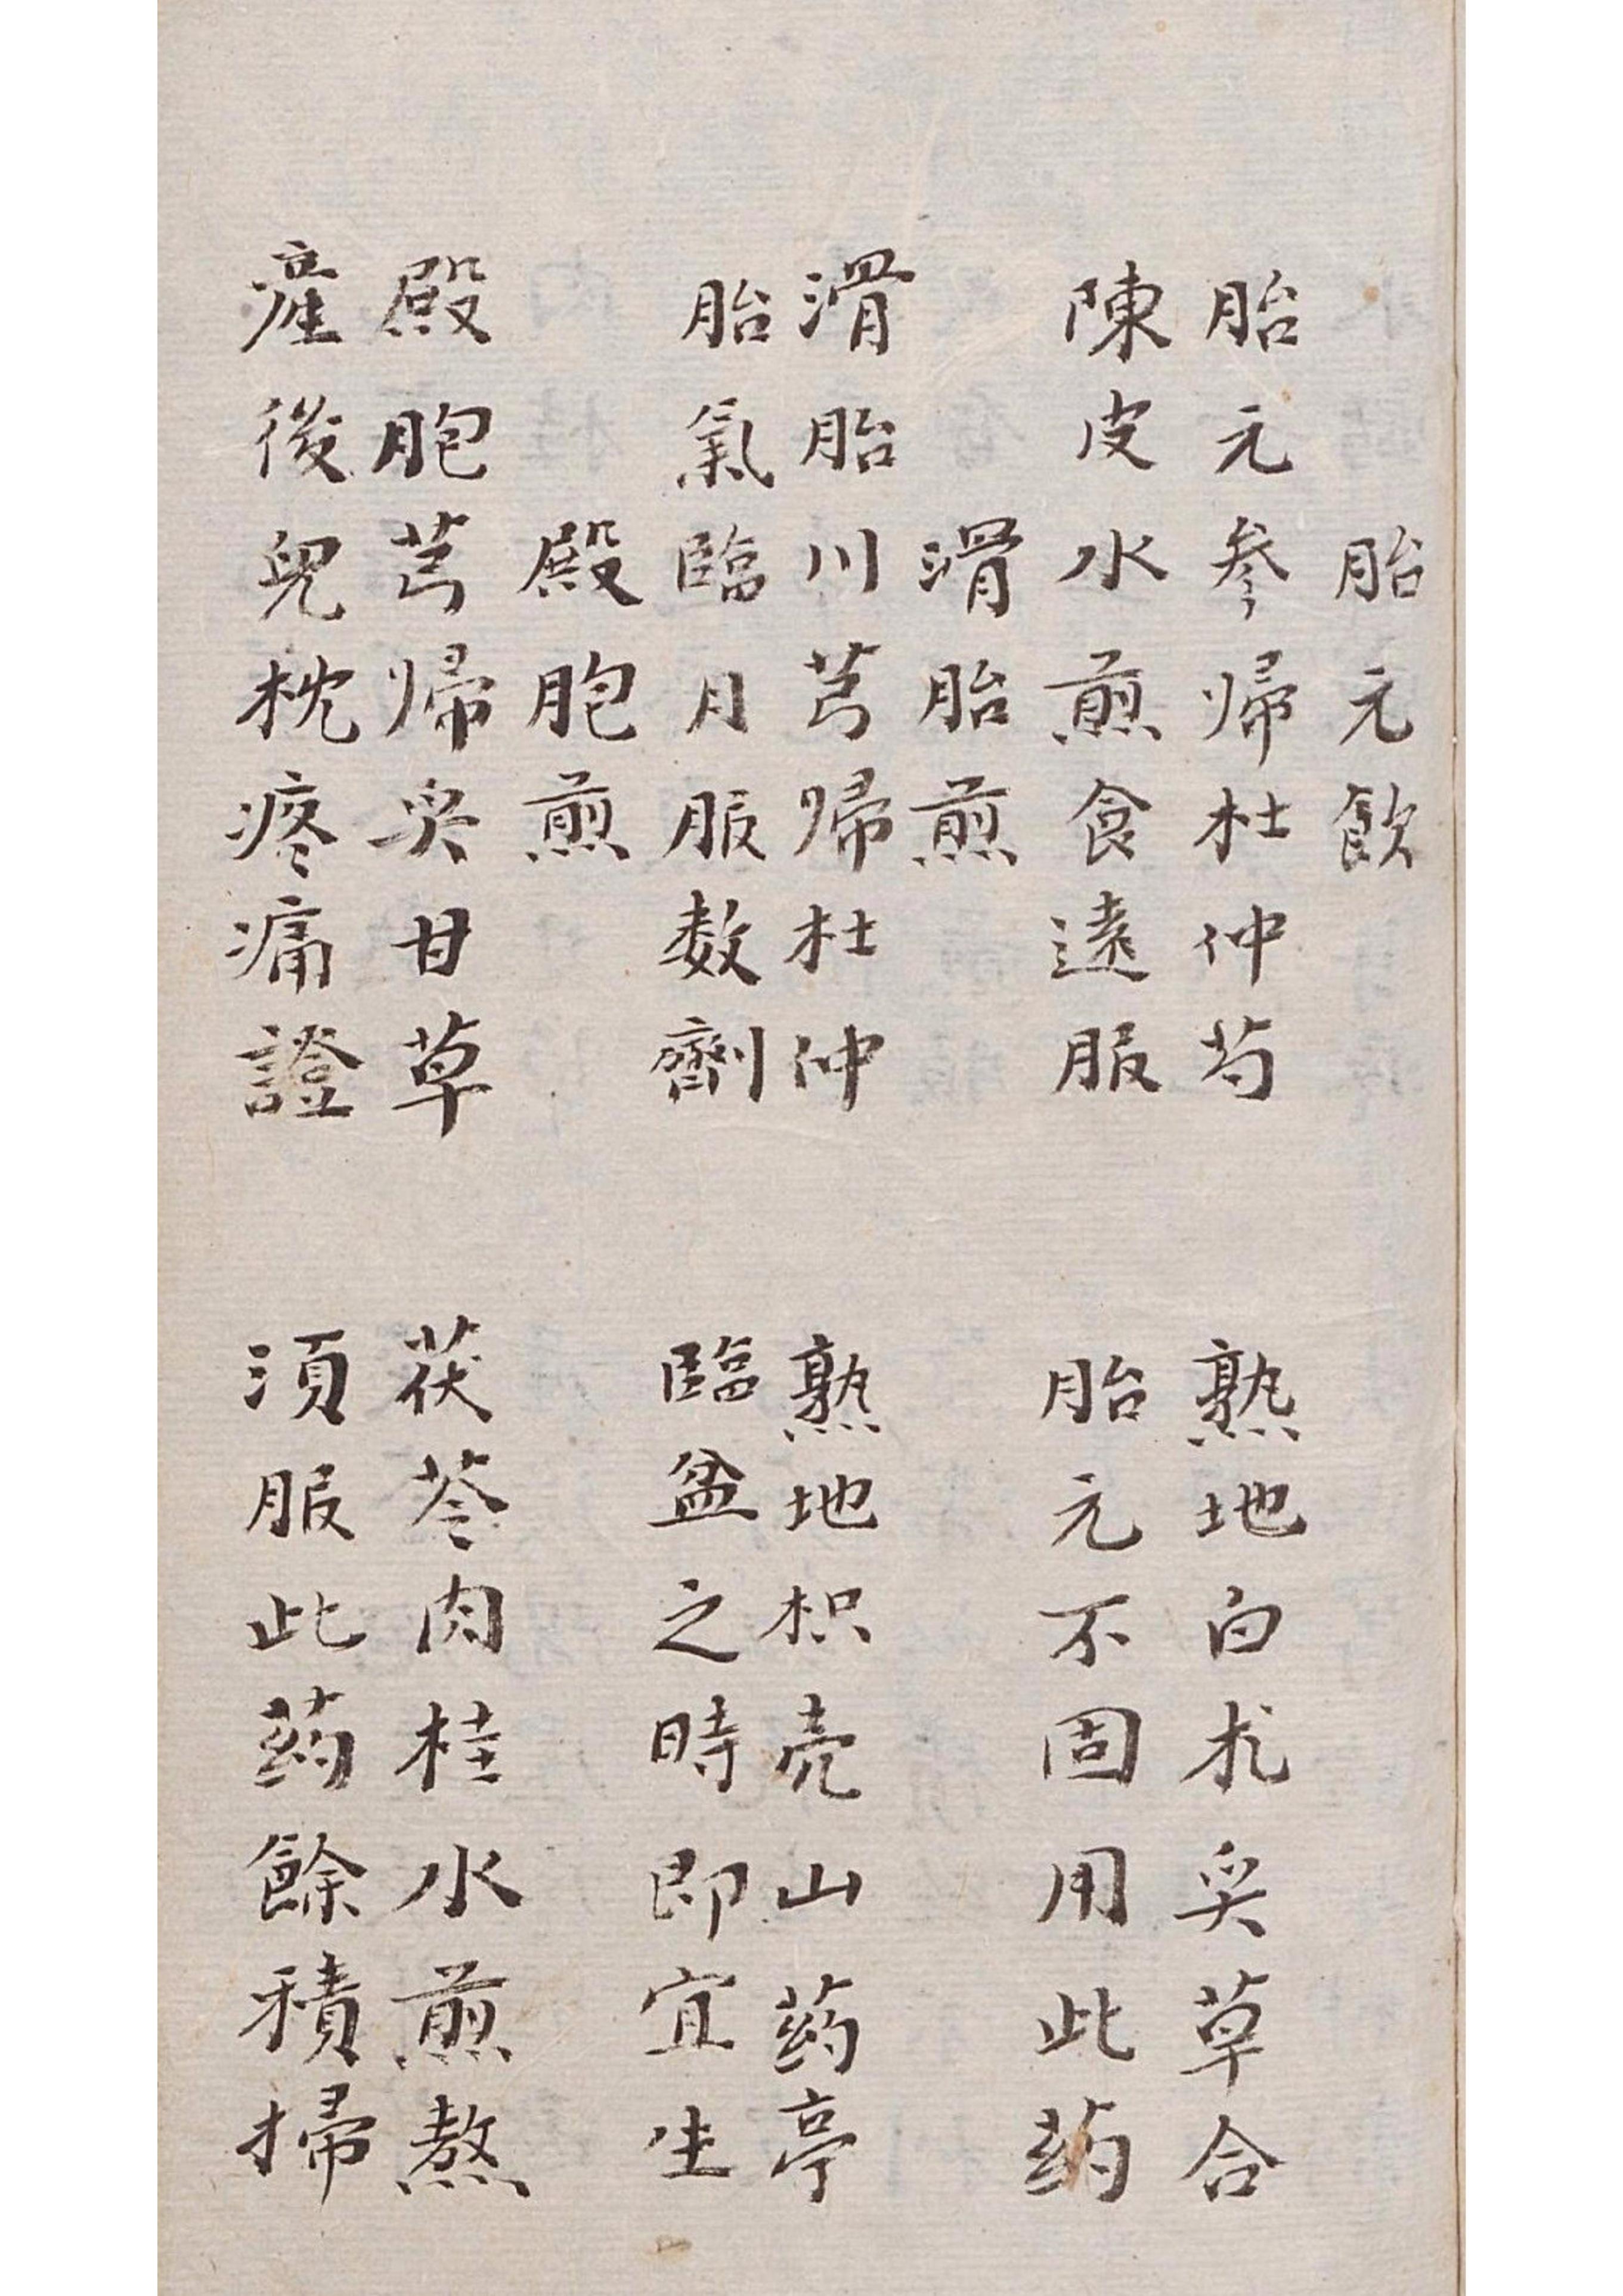 胎元飲
胎元參歸杜仲芍 熟地白朮炙草合
陳皮水煎食遠服 胎元不固用此药
滑胎煎
滑胎川芎歸杜仲 熟地枳壳山药亭
胎氣臨月服数劑 臨盆之時即宜生
殿胞煎
殿胞芎歸炙甘草 茯苓肉桂水煎熬
產後兒枕疼痛證 須服此药餘積掃